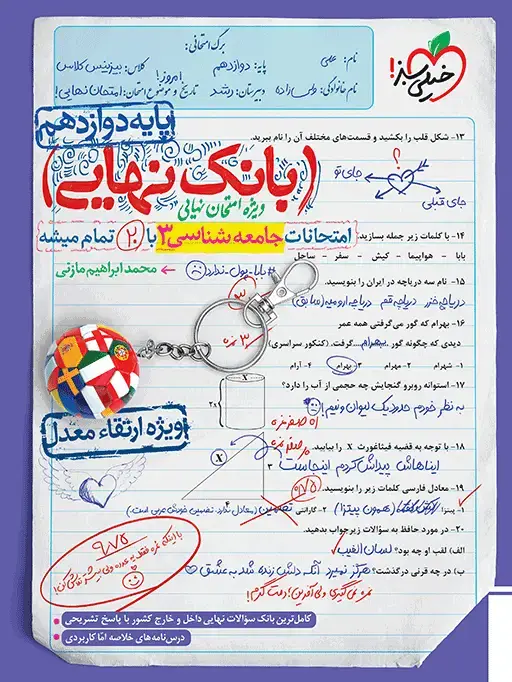 برگ امتحانی:
نام: علی
پایه: دوازدهم
کلاس: بیزینس کلاس
امروز!
دبیرستان: رشد
تاریخ و موضوع امتحان: امتحان نهایی!
خیلی سبز!
پایه دوازدهم
۱۳- شکل قلب را بکشید و قسمت‌های مختلف آن را نام ببرید.
؟
جای تو
جای قبلی
(بانک نهایی)
ویژه امتحان نهایی
امتحانات جامعه شناسی ۳ با ۲۰ تمام میشه
۱۴- با کلمات زیر جمله بسازید.
بابا - هواپیما - کیش - سفر - ساحل
# بابا-پول-ندارد
محمد ابراهیم مازنی
۱۵- نام سه دریاچه در ایران را بنویسید.
دریاچه خزر دریاچه قم دریاچه ارومیه (سابق)
۱۶- بهرام که گور می‌گرفتی همه عمر
دیدی که چگونه گور بهرام گرفت. (کنکور سراسری)
۱- شهرام ۲- مهرام ۳- بهرام ۴- آرام
۱۷- استوانه روبرو گنجایش چه حجمی از آب را دارد؟
به نظر خودم حدود یک لیوان و نیم!
X
2x
ویژه ارتقاء معدل
۱۸- با توجه به قضیه فیثاغورث X را بیابید.
ایناهاش پیداش کردم اینجاست
X
۳
۴
۱۹- معادل فارسی کلمات زیر را بنویسید.
۱- پیتزا (همون پیتزا) ۲- گارانتی تضمین
۲۰- در مورد حافظ به سؤالات زیر جواب بدهید.
الف) لقب او چه بود؟ لسان الغیب
ب) در چه قرنی درگذشت؟ هرگز نمیرد آنکه دلش زنده شد به عشق
نمره نمی‌گیری ولی آفرین! دمت گرم!
کامل‌ترین بانک سؤالات نهایی داخل و خارج کشور با پاسخ تشریحی
درس‌نامه‌های خلاصه امّا کاربردی